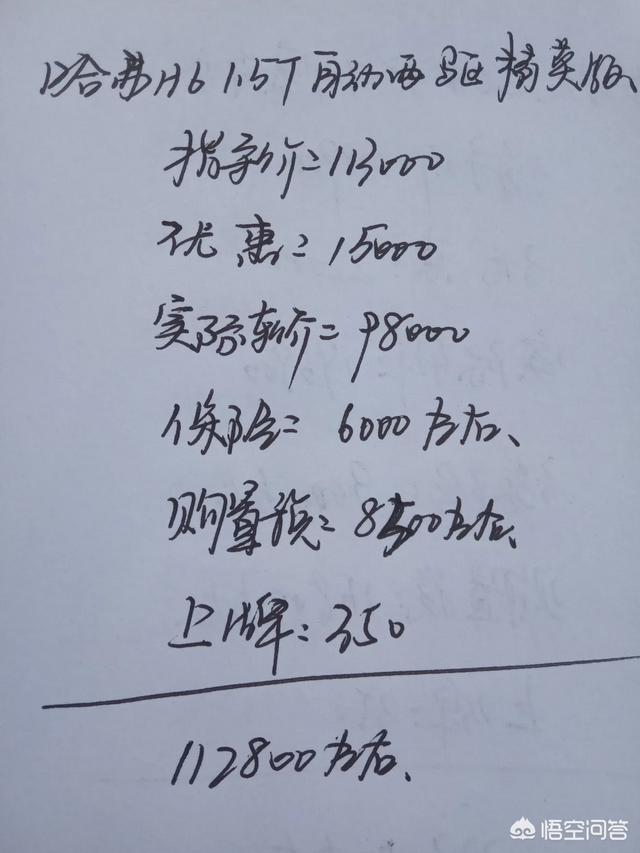 哈弗H6 1.5T自动两驱精英版
指导价=113000
优惠=15000
实际车价=98000
保险=6000左右、
购置税=8500左右、
上牌:350
112800左右、
悟空问答